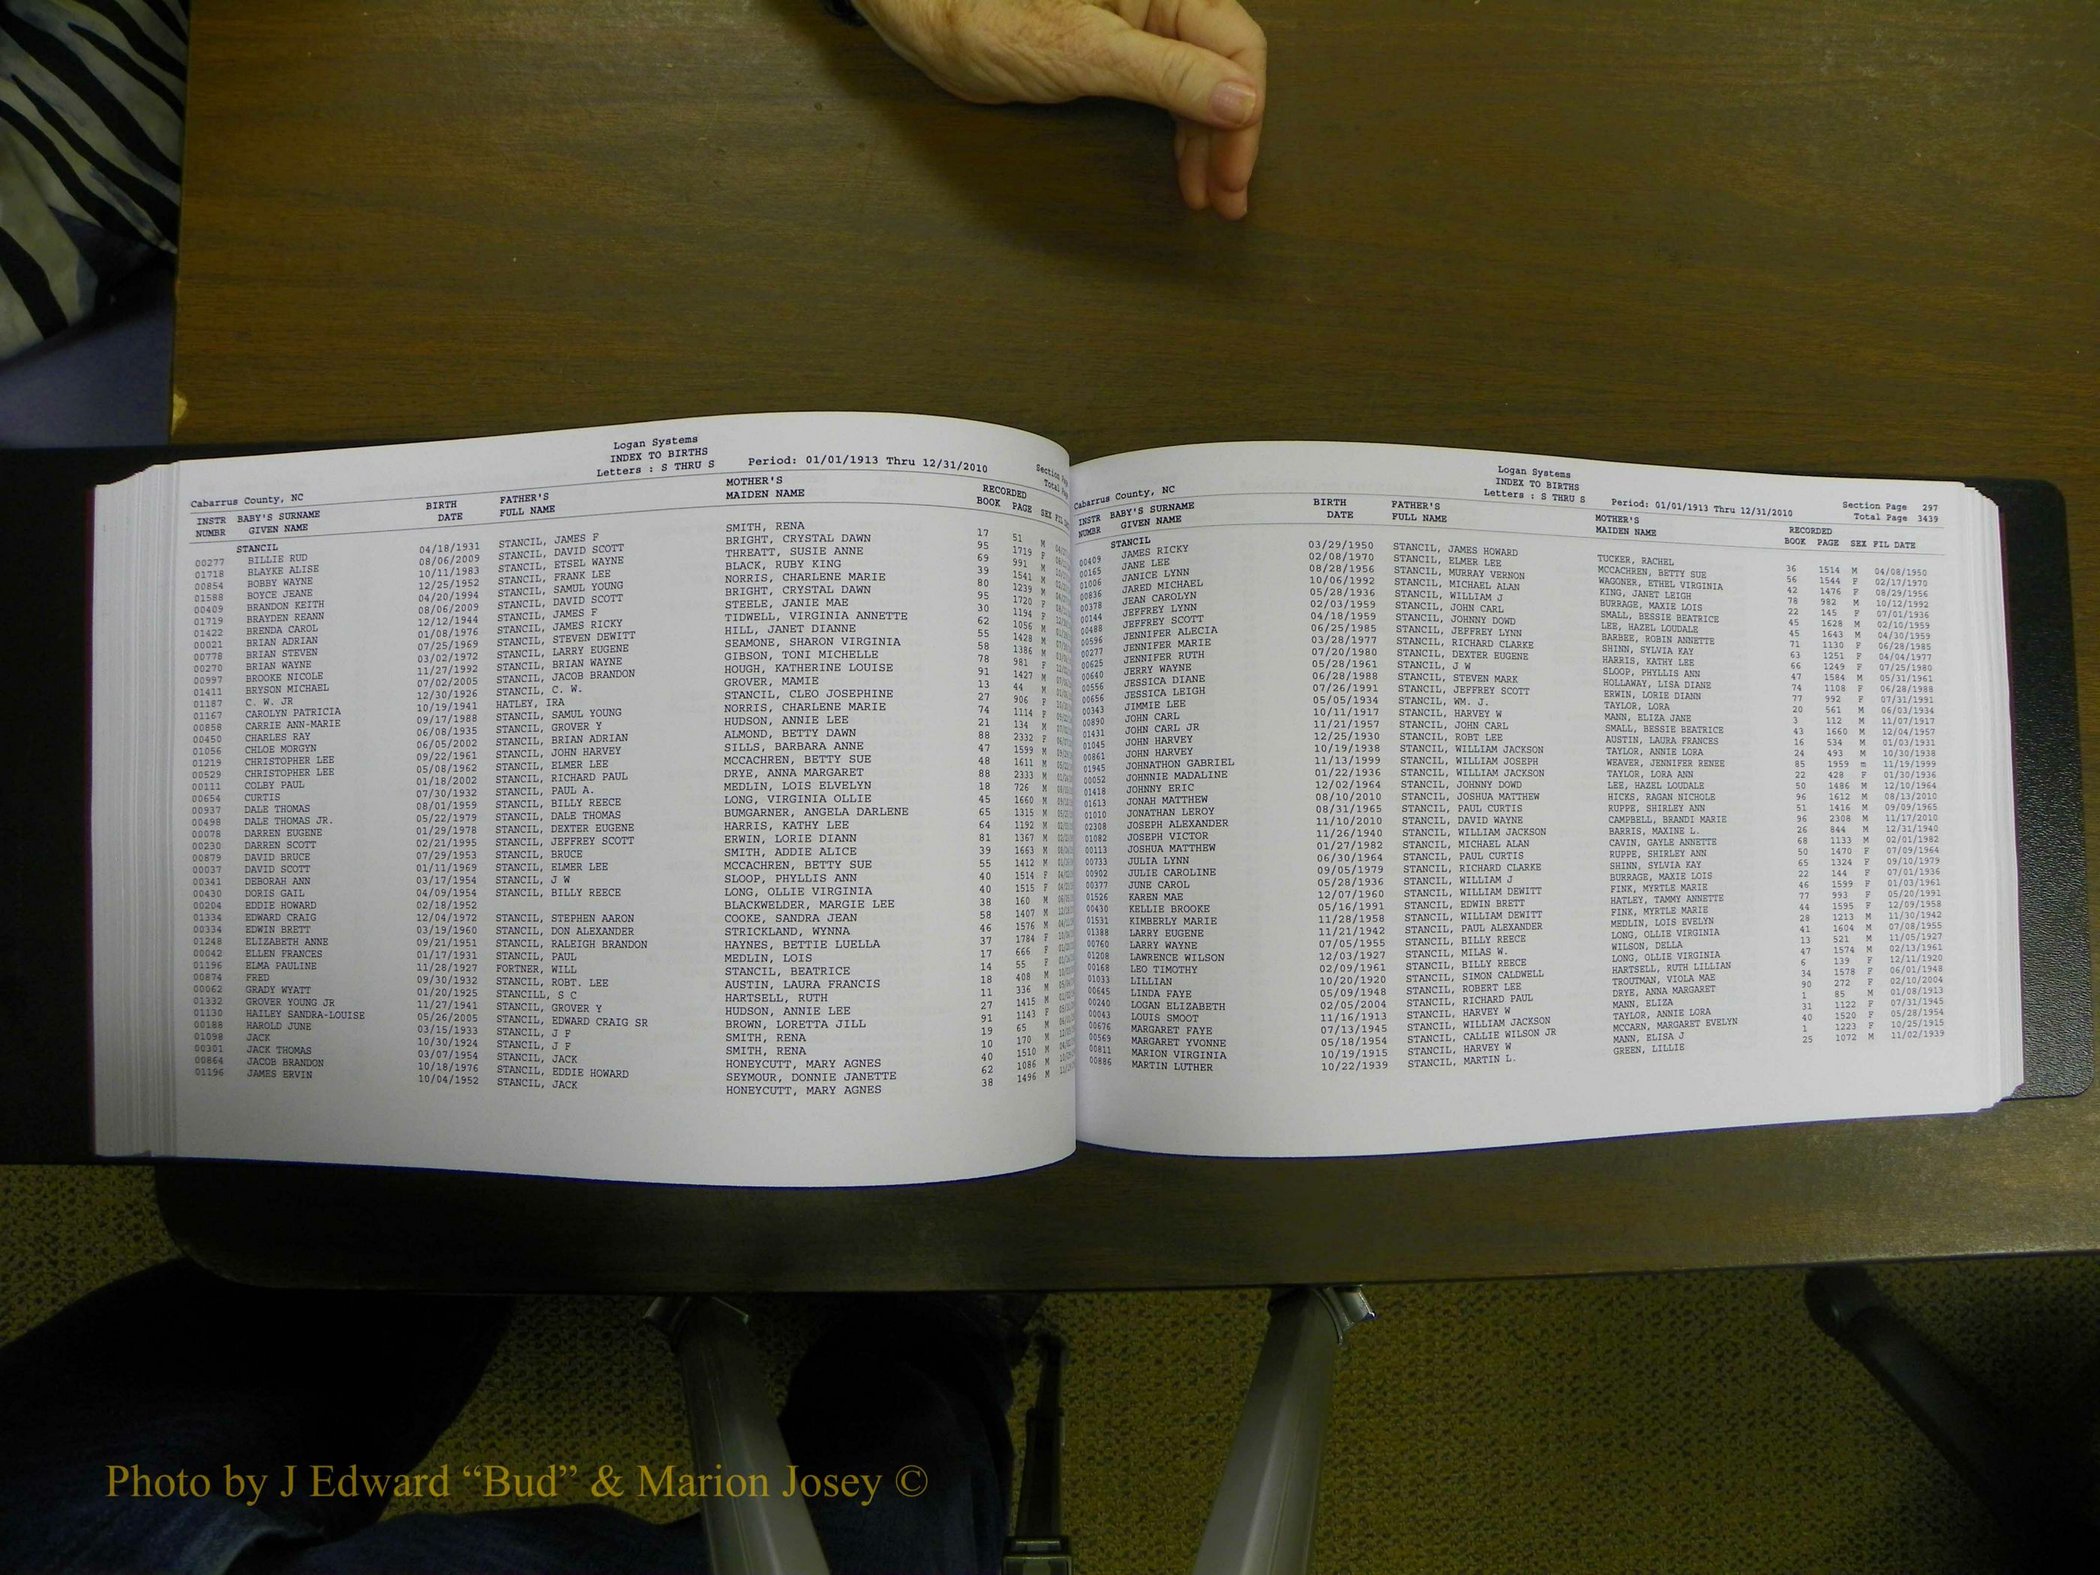 Logan Systems
INDEX TO BIRTHS
Letters : S THRU S Period: 01/01/1913 Thru 12/31/2010
Cabarrus County, NC
INSTR BABY'S SURNAME BIRTH FATHER'S MOTHER'S RECORDED
NUMBR GIVEN NAME DATE FULL NAME MAIDEN NAME BOOK PAGE SEX
STANCIL
00277 BILLIE RUD 04/18/1931 STANCIL, JAMES F SMITH, RENA 17 51 M
01718 BLAYKE ALISE 08/06/2009 STANCIL, DAVID SCOTT BRIGHT, CRYSTAL DAWN 95 1719 F
00854 BOBBY WAYNE 10/11/1983 STANCIL, ETSEL WAYNE THREATT, SUSIE ANNE 69 991 M
01588 BOYCE JEANE 12/25/1952 STANCIL, FRANK LEE BLACK, RUBY KING 39 1541 M
00409 BRANDON KEITH 04/20/1994 STANCIL, SAMUL YOUNG NORRIS, CHARLENE MARIE 80 1239 M
01719 BRAYDEN REANN 08/06/2009 STANCIL, DAVID SCOTT BRIGHT, CRYSTAL DAWN 95 1720 F
01422 BRENDA CAROL 12/12/1944 STANCIL, JAMES F STEELE, JANIE MAE 30 1194 F
00021 BRIAN ADRIAN 01/08/1976 STANCIL, JAMES RICKY TIDWELL, VIRGINIA ANNETTE 62 1056 M
00778 BRIAN STEVEN 07/25/1969 STANCIL, STEVEN DEWITT HILL, JANET DIANNE 55 1428 M
00270 BRIAN WAYNE 03/02/1972 STANCIL, LARRY EUGENE SEAMONE, SHARON VIRGINIA 58 1386 M
00997 BROOKE NICOLE 11/27/1992 STANCIL, BRIAN WAYNE GIBSON, TONI MICHELLE 78 981 F
01411 BRYSON MICHAEL 07/02/2005 STANCIL, JACOB BRANDON HOUGH, KATHERINE LOUISE 91 1427 M
01187 C. W. JR 12/30/1926 STANCIL, C. W. GROVER, MAMIE 13 44 M
01167 CAROLYN PATRICIA 10/19/1941 HATLEY, IRA STANCIL, CLEO JOSEPHINE 27 906 F
00858 CARRIE ANN-MARIE 09/17/1988 STANCIL, SAMUL YOUNG NORRIS, CHARLENE MARIE 74 1114 F
00450 CHARLES RAY 06/08/1935 STANCIL, GROVER Y HUDSON, ANNIE LEE 21 134 M
01056 CHLOE MORGYN 06/05/2002 STANCIL, BRIAN ADRIAN ALMOND, BETTY DAWN 88 2332 F
01219 CHRISTOPHER LEE 09/22/1961 STANCIL, JOHN HARVEY SILLS, BARBARA ANNE 47 1599 M
00529 CHRISTOPHER LEE 05/08/1962 STANCIL, ELMER LEE MCCACHREN, BETTY SUE 48 1611 M
00111 COLBY PAUL 01/18/2002 STANCIL, RICHARD PAUL DRYE, ANNA MARGARET 88 2333 M
00654 CURTIS 07/30/1932 STANCIL, PAUL A. MEDLIN, LOIS ELVELYN 18 726 M
00937 DALE THOMAS 08/01/1959 STANCIL, BILLY REECE LONG, VIRGINIA OLLIE 45 1660 M
00498 DALE THOMAS JR. 05/22/1979 STANCIL, DALE THOMAS BUMGARNER, ANGELA DARLENE 65 1315 M
00078 DARREN EUGENE 01/29/1978 STANCIL, DEXTER EUGENE HARRIS, KATHY LEE 64 1192 M
00230 DARREN SCOTT 02/21/1995 STANCIL, JEFFREY SCOTT ERWIN, LORIE DIANN 81 1367 M
00879 DAVID BRUCE 07/29/1953 STANCIL, BRUCE SMITH, ADDIE ALICE 39 1663 M
00037 DAVID SCOTT 01/11/1969 STANCIL, ELMER LEE MCCACHREN, BETTY SUE 55 1412 M
00341 DEBORAH ANN 03/17/1954 STANCIL, J W SLOOP, PHYLLIS ANN 40 1514 F
00430 DORIS GAIL 04/09/1954 STANCIL, BILLY REECE LONG, OLLIE VIRGINIA 40 1515 F
00204 EDDIE HOWARD 02/18/1952 BLACKWELDER, MARGIE LEE 38 160 M
01334 EDWARD CRAIG 12/04/1972 STANCIL, STEPHEN AARON COOKE, SANDRA JEAN 58 1407 M
00334 EDWIN BRETT 03/19/1960 STANCIL, DON ALEXANDER STRICKLAND, WYNNA 46 1576 M
01248 ELIZABETH ANNE 09/21/1951 STANCIL, RALEIGH BRANDON HAYNES, BETTIE LUELLA 37 1784 F
00042 ELLEN FRANCES 01/17/1931 STANCIL, PAUL MEDLIN, LOIS 17 666 F
01196 ELMA PAULINE 11/28/1927 FORTNER, WILL STANCIL, BEATRICE 14 55 F
00874 FRED 09/30/1932 STANCIL, ROBT. LEE AUSTIN, LAURA FRANCIS 18 408 M
00062 GRADY WYATT 01/20/1925 STANCILL, S C HARTSELL, RUTH 11 336 M
01332 GROVER YOUNG JR 11/27/1941 STANCIL, GROVER Y HUDSON, ANNIE LEE 27 1415 M
01130 HAILEY SANDRA-LOUISE 05/26/2005 STANCIL, EDWARD CRAIG SR BROWN, LORETTA JILL 91 1143 F
00188 HAROLD JUNE 03/15/1933 STANCIL, J F SMITH, RENA 19 65 M
01098 JACK 10/30/1924 STANCIL, J F SMITH, RENA 10 170 M
00301 JACK THOMAS 03/07/1954 STANCIL, JACK HONEYCUTT, MARY AGNES 40 1510 M
00864 JACOB BRANDON 10/18/1976 STANCIL, EDDIE HOWARD SEYMOUR, DONNIE JANETTE 62 1086 M
01196 JAMES ERVIN 10/04/1952 STANCIL, JACK HONEYCUTT, MARY AGNES 38 1496 M
Logan Systems
INDEX TO BIRTHS
Letters : S THRU S Period: 01/01/1913 Thru 12/31/2010
Section Page 297
Total Page 3439
Cabarrus County, NC
INSTR BABY'S SURNAME BIRTH FATHER'S MOTHER'S RECORDED
NUMBR GIVEN NAME DATE FULL NAME MAIDEN NAME BOOK PAGE SEX FIL DATE
STANCIL
00409 JAMES RICKY 03/29/1950 STANCIL, JAMES HOWARD TUCKER, RACHEL 36 1514 M 04/08/1950
00165 JANE LEE 02/08/1970 STANCIL, ELMER LEE MCCACHREN, BETTY SUE 56 1544 F 02/17/1970
01006 JANICE LYNN 08/28/1956 STANCIL, MURRAY VERNON WAGONER, ETHEL VIRGINIA 42 1476 F 08/29/1956
00836 JARED MICHAEL 10/06/1992 STANCIL, MICHAEL ALAN KING, JANET LEIGH 78 982 M 10/12/1992
00378 JEAN CAROLYN 05/28/1936 STANCIL, WILLIAM J BURRAGE, MAXIE LOIS 22 145 F 07/01/1936
00144 JEFFREY LYNN 02/03/1959 STANCIL, JOHN CARL SMALL, BESSIE BEATRICE 45 1628 M 02/10/1959
00488 JEFFREY SCOTT 04/18/1959 STANCIL, JOHNNY DOWD LEE, HAZEL LOUDALE 45 1643 M 04/30/1959
00596 JENNIFER ALECIA 06/25/1985 STANCIL, JEFFREY LYNN BARBEE, ROBIN ANNETTE 71 1130 F 06/28/1985
00277 JENNIFER MARIE 03/28/1977 STANCIL, RICHARD CLARKE SHINN, SYLVIA KAY 63 1251 F 04/04/1977
00625 JENNIFER RUTH 07/20/1980 STANCIL, DEXTER EUGENE HARRIS, KATHY LEE 66 1249 F 07/25/1980
00640 JERRY WAYNE 05/28/1961 STANCIL, J W SLOOP, PHYLLIS ANN 47 1584 M 05/31/1961
00556 JESSICA DIANE 06/28/1988 STANCIL, STEVEN MARK HOLLAWAY, LISA DIANE 74 1108 F 06/28/1988
00656 JESSICA LEIGH 07/26/1991 STANCIL, JEFFREY SCOTT ERWIN, LORIE DIANN 77 992 F 07/31/1991
00343 JIMMIE LEE 05/05/1934 STANCIL, WM. J. TAYLOR, LORA 20 561 M 06/03/1934
00890 JOHN CARL 10/11/1917 STANCIL, HARVEY W MANN, ELIZA JANE 3 112 M 11/07/1917
01431 JOHN CARL JR 11/21/1957 STANCIL, JOHN CARL SMALL, BESSIE BEATRICE 43 1660 M 12/04/1957
01045 JOHN HARVEY 12/25/1930 STANCIL, ROBT LEE AUSTIN, LAURA FRANCES 16 534 M 01/03/1931
00861 JOHN HARVEY 10/19/1938 STANCIL, WILLIAM JACKSON TAYLOR, ANNIE LORA 24 493 M 10/30/1938
01945 JOHNATHON GABRIEL 11/13/1999 STANCIL, WILLIAM JOSEPH WEAVER, JENNIFER RENEE 85 1959 m 11/19/1999
00052 JOHNNIE MADALINE 01/22/1936 STANCIL, WILLIAM JACKSON TAYLOR, LORA ANN 22 428 F 01/30/1936
01418 JOHNNY ERIC 12/02/1964 STANCIL, JOHNNY DOWD LEE, HAZEL LOUDALE 50 1486 M 12/10/1964
01613 JONAH MATTHEW 08/10/2010 STANCIL, JOSHUA MATTHEW HICKS, RAGAN NICHOLE 96 1612 M 08/13/2010
01010 JONATHAN LEROY 08/31/1965 STANCIL, PAUL CURTIS RUPPE, SHIRLEY ANN 51 1416 M 09/09/1965
02308 JOSEPH ALEXANDER 11/10/2010 STANCIL, DAVID WAYNE CAMPBELL, BRANDI MARIE 96 2308 M 11/17/2010
01082 JOSEPH VICTOR 11/26/1940 STANCIL, WILLIAM JACKSON BARRIS, MAXINE L. 26 844 M 12/31/1940
00113 JOSHUA MATTHEW 01/27/1982 STANCIL, MICHAEL ALAN CAVIN, GAYLE ANNETTE 68 1133 M 02/01/1982
00733 JULIA LYNN 06/30/1964 STANCIL, PAUL CURTIS RUPPE, SHIRLEY ANN 50 1470 F 07/09/1964
00902 JULIE CAROLINE 09/05/1979 STANCIL, RICHARD CLARKE SHINN, SYLVIA KAY 65 1324 F 09/10/1979
00377 JUNE CAROL 05/28/1936 STANCIL, WILLIAM J BURRAGE, MAXIE LOIS 22 144 F 07/01/1936
01526 KAREN MAE 12/07/1960 STANCIL, WILLIAM DEWITT FINK, MYRTLE MARIE 46 1599 F 01/03/1961
00430 KELLIE BROOKE 05/16/1991 STANCIL, EDWIN BRETT HATLEY, TAMMY ANNETTE 77 993 F 05/20/1991
01531 KIMBERLY MARIE 11/28/1958 STANCIL, WILLIAM DEWITT FINK, MYRTLE MARIE 44 1595 F 12/09/1958
01388 LARRY EUGENE 11/21/1942 STANCIL, PAUL ALEXANDER MEDLIN, LOIS EVELYN 28 1213 M 11/30/1942
00760 LARRY WAYNE 07/05/1955 STANCIL, BILLY REECE LONG, OLLIE VIRGINIA 41 1604 M 07/08/1955
01208 LAWRENCE WILSON 12/03/1927 STANCIL, MILAS W. WILSON, DELLA 13 521 M 11/05/1927
00168 LEO TIMOTHY 02/09/1961 STANCIL, BILLY REECE LONG, OLLIE VIRGINIA 47 1574 M 02/13/1961
01033 LILLIAN 10/20/1920 STANCIL, SIMON CALDWELL HARTSELL, RUTH LILLIAN 6 139 F 12/11/1920
00645 LINDA FAYE 05/09/1948 STANCIL, ROBERT LEE TROUTMAN, VIOLA MAE 34 1578 F 06/01/1948
00240 LOGAN ELIZABETH 02/05/2004 STANCIL, RICHARD PAUL DRYE, ANNA MARGARET 90 272 F 02/10/2004
00043 LOUIS SMOOT 11/16/1913 STANCIL, HARVEY W MANN, ELIZA 1 85 M 01/08/1913
00676 MARGARET FAYE 07/13/1945 STANCIL, WILLIAM JACKSON TAYLOR, ANNIE LORA 31 1122 F 07/31/1945
00569 MARGARET YVONNE 05/18/1954 STANCIL, CALLIE WILSON JR MCCARN, MARGARET EVELYN 40 1520 F 05/28/1954
00811 MARION VIRGINIA 10/19/1915 STANCIL, HARVEY W MANN, ELISA J 1 1223 F 10/25/1915
00886 MARTIN LUTHER 10/22/1939 STANCIL, MARTIN L. GREEN, LILLIE 25 1072 M 11/02/1939
Photo by J Edward “Bud” & Marion Josey ©